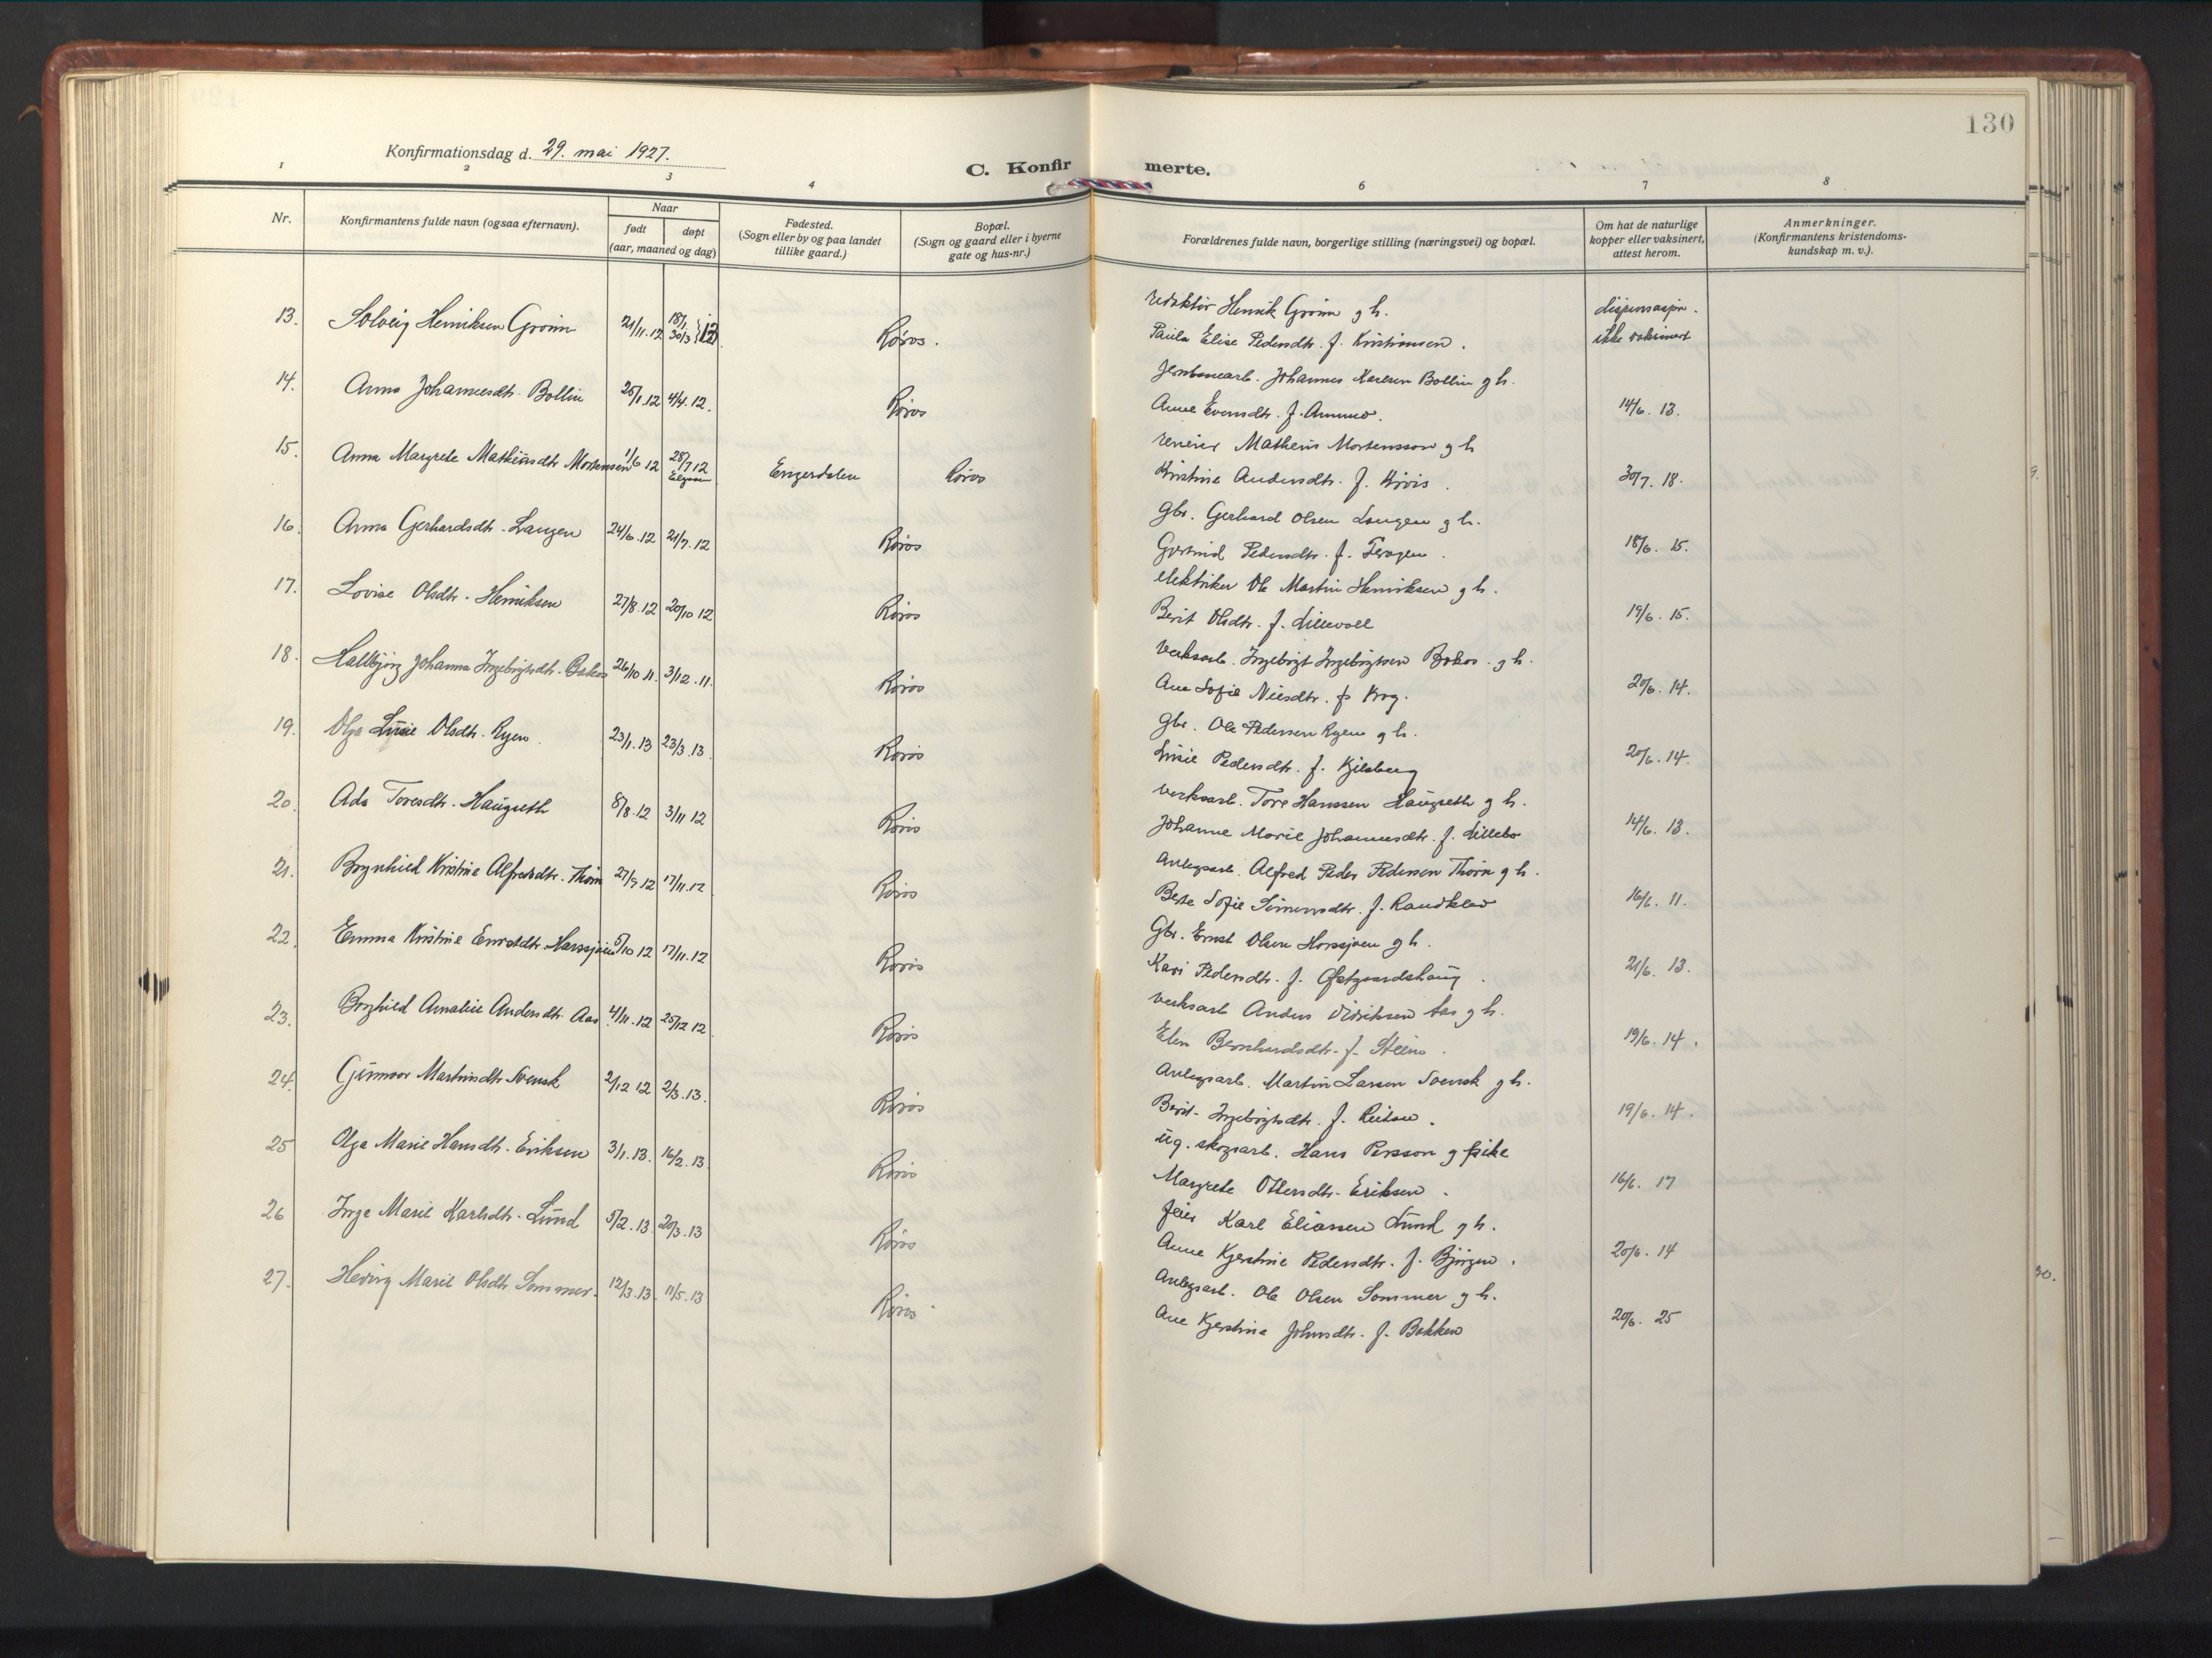 130
Konfirmationsdag d. 29. mai 1927.
C. Konfirmerte.
1 2 3 4 6 7 8
Nr.
Konfirmantens fulde navn (ogsaa efternavn).
Naar
født døpt
(aar, maaned og dag)
Fødested.
(Sogn eller by og paa landet
tillike gaard.)
Bopæl.
(Sogn og gaard eller i byerne
gate og hus-nr.)
Forældrenes fulde navn, borgerlige stilling (næringsvei) og bopæl.
Om hat de naturlige
kopper eller vaksinert,
attest herom.
Anmerkninger.
(Konfirmantens kristendoms-
kundskap m. v.).
redaktør Henrik Grønn g h. dispensasjon.
13. Solveig Henriksen Grønn 21/11.12 18/1 30/3 } 13 Røros.
Paula Elise Pedersdtr. f. Kristiansen. ikke vaksinert
Jernbanearb. Johannes Karlsen Bollin g h.
14. Anna Johannesdtr. Bollin 25/1.12 4/4.12. Røros
Anne Evensdtr. f. 14/6. 13.
Mathens Mortensson g h
15. Anna Margrete Mathensdtr Mortensen 1/6 12 28/7 12 Engerdalen Røros
Kristine Andersdtr. f. 30/7. 18.
gbr. Gerhard Olsen Langen g h.
16. Anna Gerhardsdtr. Langen 24/6.12 21/7.12 Røros
Pedersdtr. f. Feragen. 18/6. 15.
elektriker Ole Martin Henriksen g h.
17. Lovise Olsdtr. Henriksen 27/8 12 20/10 12 Røros
Berit Olsdtr. f. Lillevoll 19/6. 15.
Verksarb. Ingebrigt Ingebrigtsen g h.
18. Hallbjørg Johanna Ingebrigtsdtr. 26/10 11. 3/12.11. Røros
Ane Sofie Nilsdtr. f. Krog. 20/6. 14.
gbr. Ole Pedersen Ryen g h.
19. Olga Lusie Olsdtr. Ryen. 23/1.13 23/3.13 Røros
Lusie Pedersdtr. f. Kjelsberg 20/6. 14.
verksarb. Tore Hanssen Haugseth g h.
20. Ada Toresdtr. Haugseth 8/8.12 3/11 12 Røros
Johanne Marie Johannesdtr. f. Lillebo 14/6. 13.
Anlegsarb. Alfred Peder Pedersen Thorn g h.
21. Brynhild Kristine Alfredsdtr. Thorn 27/9 12 17/11.12. Røros
Berte Sofie Simensdtr. f. Randklev 16/6. 11.
Gbr. Ernst Olsen Harsjøen g h.
22. Emma Kristine Ernstdtr. Harssjøen 5/10 12 17/11.12 Røros
Kari Pedersdtr. f. Østgaardshaug. 21/6. 13.
verksarb Anders Didriksen Aas g h.
23. Borghild Amalie Andersdtr. Aas 4/11.12 25/12 12 Røros
Elen Bernhardsdtr. f. Steen. 19/6. 14.
Anlegsarb. Martin Larsen Svensk g h.
24. Gunvor Martinsdtr Svensk 2/12 12 2/3.13. Røros
Berit Ingebrigtsdtr. f. Reitan. 19/6. 14.
ug. skogsarb. Hans Persson g pike
25 Olga Marie Hansdtr. Eriksen 3/1.13. 16/2.13 Røros
Margrete Ottersdtr. Eriksen. 16/6. 17
feier Karl Eliassen Lund g h.
26 Inga Marie Karlsdtr. Lund 5/2.13 20/3.13 Røros
Anne Kjerstine Pedersdtr. f. Bjørgen. 20/6. 14
Anlegsarb. Ole Olsen Sommer g h.
27. Hedvig Marie Olsdtr. Sommer. 12/3.13. 11/5.13 Røros
Ane Kjerstina Johnsdtr. f. Bakken 20/6. 25